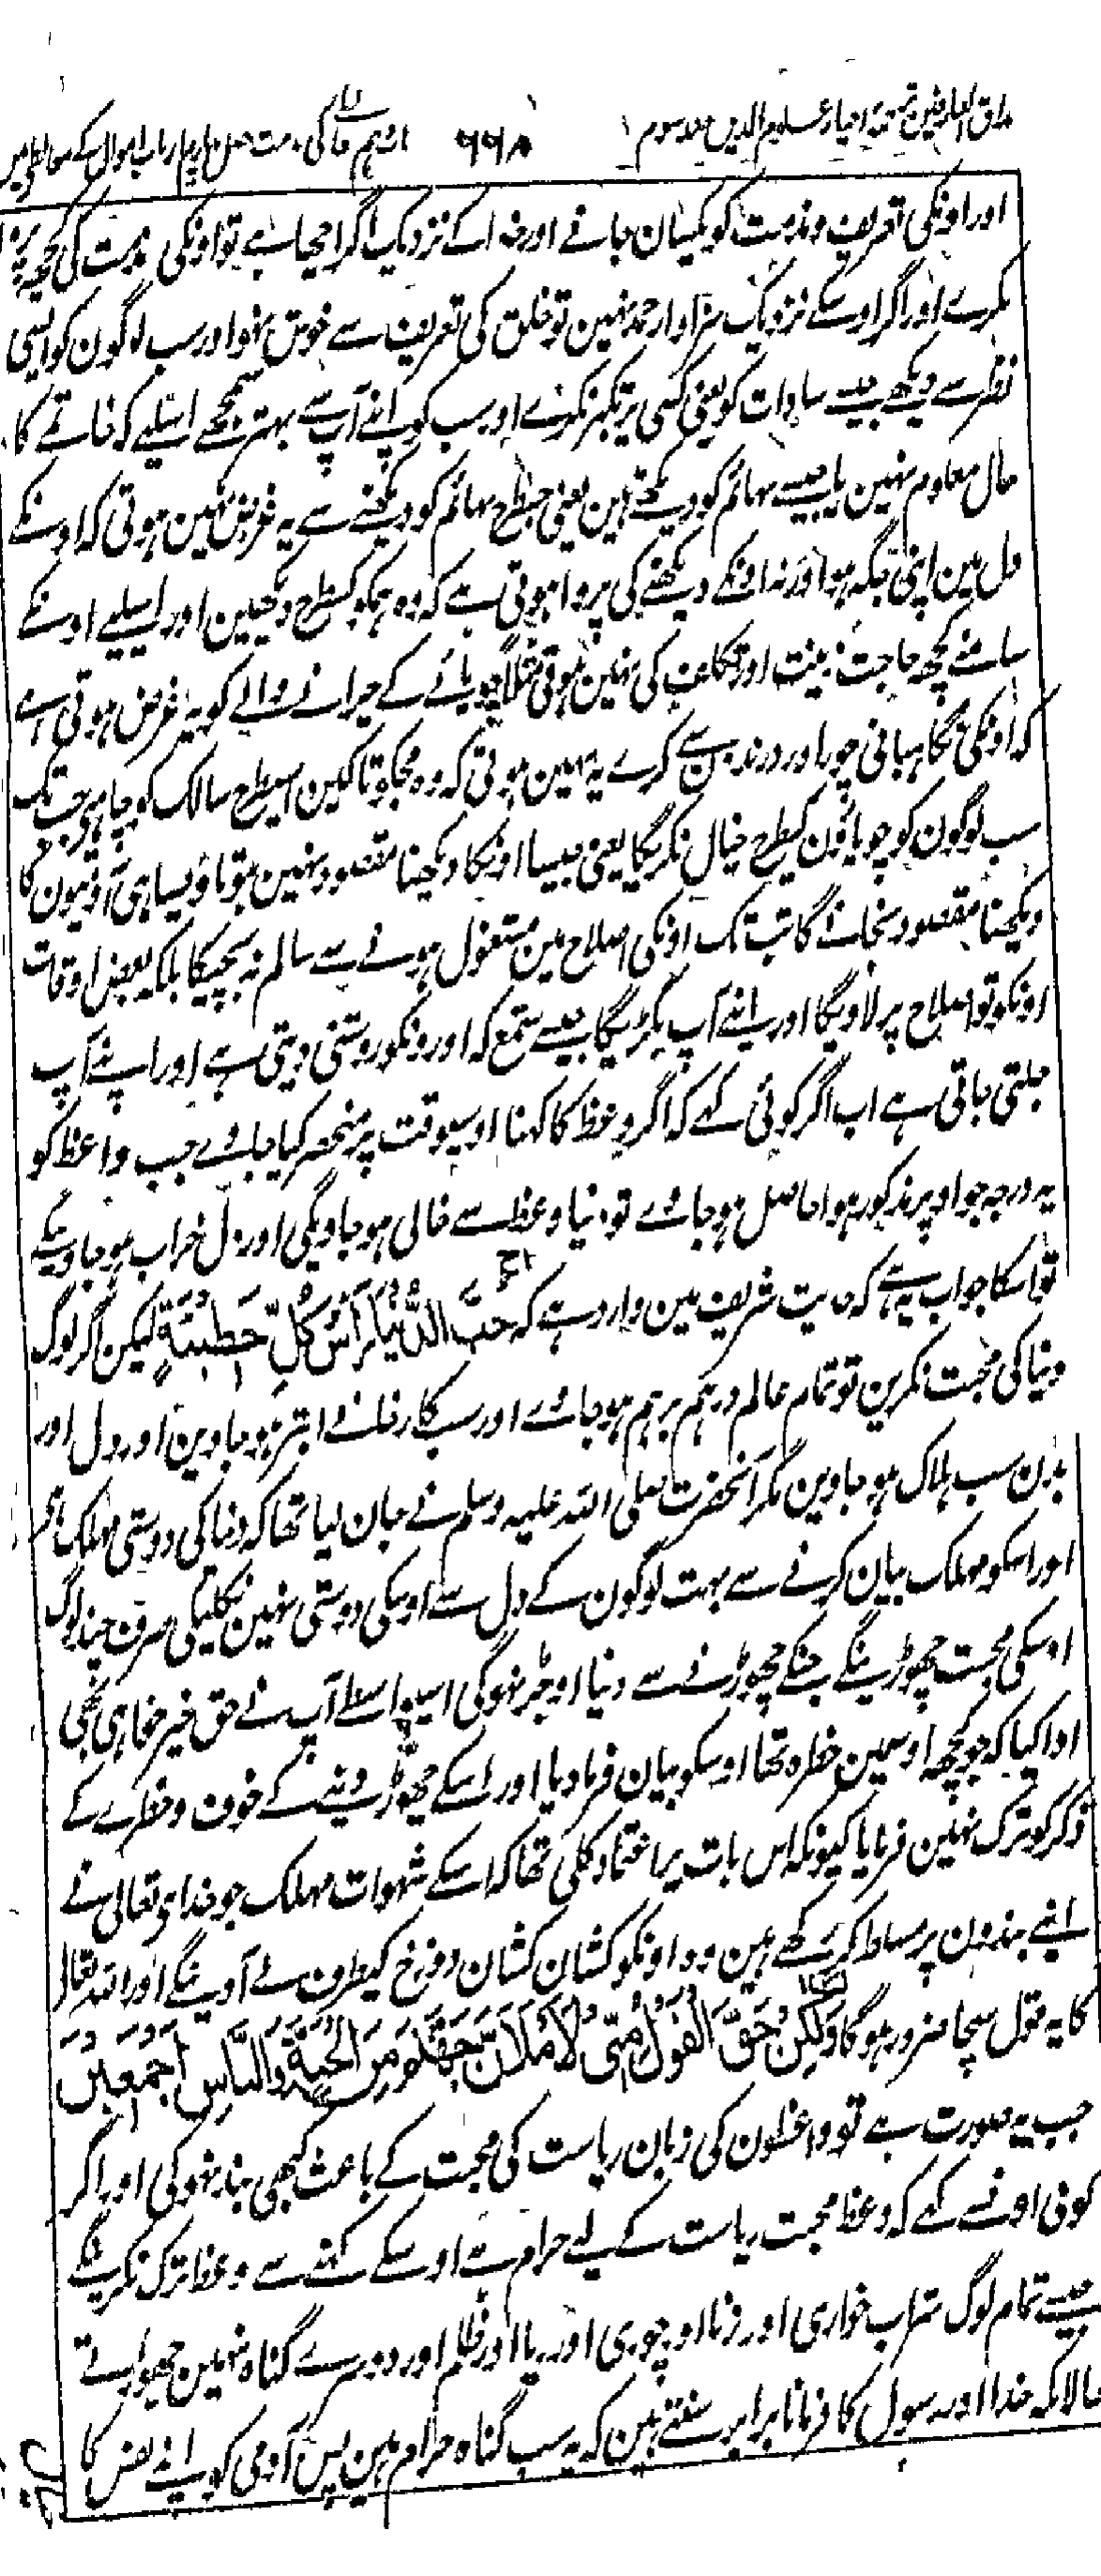 مذاق العارفین ترجمہ احیاء علوم الدین جلد سوم ۶۶۸
اور اونکی تعریف و مذمت کو یکسان جانے اور خدا کے نزدیک اگر اچھا ہے تو اونکی مذمت کی کچھ پروا
نکرے اور اگر اوسکے نزدیک سزاوار حمد نہین تو خلق کی تعریف سے خوش نہو اور سب لوگون کو ایسی
نظر سے دیکھے جیسے سادات کو یعنی کسی پر تکبر نکرے اور سب کو اپنے آپ سے بہتر سمجھے اسلیے کہ خاتمے کا
حال معلوم نہین یا جیسے بہائم کو دیکھتے ہین یعنی جسطرح بہائم کو دیکھنے سے یہ غرض نہین ہوتی کہ اونکے
دل مین اپنی جگہ ہو اور نہ اونکے دیکھنے کی پروا ہوتی ہے کہ وہ ہمکو کسطرح دیکھین اور اسلیے اونکے
سامنے کچھ حاجت زینت اور تکلف کی نہین ہوتی مثلاً چوپائے کے چرانے والے کو یہ غرض ہوتی ہے
کہ اونکی نگاہبانی چور اور درندون سے کرے یہ نہین ہوتی کہ وہ مجکو تاکین اسیطرح سالک کو چاہیے جب تک
سب لوگون کو چوپاؤن کیطرح خیال نکریگا یعنی جیسا اونکا دیکھنا مقصود نہین ہوتا ویسا ہی آدمیون کا
دیکھنا مقصود نجانے گا تب تک اونکی اصلاح مین مشغول ہونے سے سالم نہ بچیگا بلکہ بعض اوقات
اونکو تو اصلاح پر لاویگا اور اپنے آپ بگڑیگا جیسے شمع کہ اورونکو روشنی دیتی ہے اور اپنے آپ
جلتی جاتی ہے اب اگر کوئی کہے کہ اگر وعظ کا کہنا اوسیوقت پر منحصر کیا جاوے جب واعظ کو
یہ درجہ جو اوپر مذکور ہوا حاصل ہو جاوے تو دنیا وعظ سے خالی ہو جاویگی اور دل خراب ہو جاوینگے
تو اسکا جواب یہ ہے کہ حدیث شریف مین وارد ہے کہ حُبُّ الدُّنْيَا رَأْسُ كُلِّ خَطِيئَةٍ لیکن اگر لوگ
دنیا کی محبت نکرین تو تمام عالم درہم برہم ہو جاوے اور سب کارخانے ابتر ہو جاوین اور دل اور
بدن سب ہلاک ہو جاوین مگر آنحضرت صلی اللہ علیہ وسلم نے جان لیا تھا کہ دنیا کی دوستی مہلک ہے
اور اسکو مہلک بیان کرنے سے بہت لوگون کے دل سے اوسکی دوستی نہین نکلیگی صرف چند لوگ
اوسکی محبت چھوڑینگے جنکے چھوڑنے سے دنیا اوجڑ نہوگی اسیواسطے آپ نے حق خیر خواہی بھی
ادا کیا کہ جو کچھ اوسمین خطرہ تھا اوسکو بیان فرما دیا اور اسکے چھوڑ دینے کے خوف و خطرے کے
ذکر کو ترک نہین فرمایا کیونکہ اس بات پر اعتماد کلی تھا کہ اسکے شہوات مہلک جو خداے تعالی نے
اپنے بندون پر مسلط کر رکھے ہین وہ اونکو کشان کشان دوزخ کیطرف لے آوینگے اور اللہ تعالی
کا یہ قول سچا ضرور ہوگا وَلَكِنْ حَقَّ الْقَوْلُ مِنِّي لَأَمْلَأَنَّ جَهَنَّمَ مِنَ الْجِنَّةِ وَالنَّاسِ أَجْمَعِينَ
جب یہ صورت ہے تو واعظون کی زبان ریاست کی محبت کے باعث کبھی بند نہوگی اور اگر
کوئی اونسے کہے کہ وعظ محبت ریاست کے لیے حرام ہے اوسکے کہنے سے وعظ ترک نکرینگے
جیسے تمام لوگ شراب خواری اور زنا اور چوری اور ریا اور ظلم اور دوسرے گناہ نہین چھوڑتے
حالانکہ خدا اور رسول کا فرمانا برابر سنتے ہین کہ یہ سب گناہ حرام ہین پس آدمی کو اپنے نفس کا